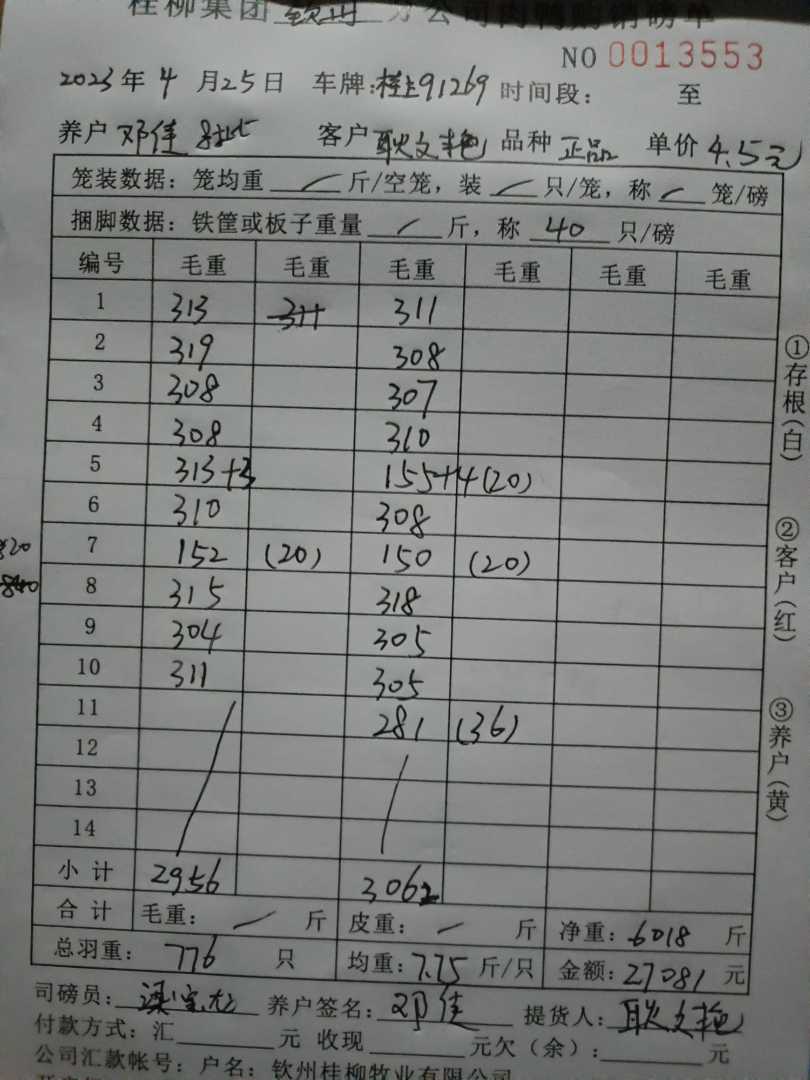 桂柳集团 钦州 分公司肉鸭购销磅单
NO 0013553
2023年4月25日 车牌:桂A91269 时间段: 至
养户 邓佳 客户 耿文艳 品种 正品 单价 4.5元
笼装数据：笼均重 / 斤/空笼，装 / 只/笼，称 / 笼/磅
捆脚数据：铁筐或板子重量 / 斤，称 40 只/磅
编号 毛重 毛重 毛重 毛重 毛重 毛重
1 313 311 311
2 319 308
3 308 307
4 308 310
5 313+3 155+4(20)
6 310 308
7 152 (20) 150 (20)
8 315 318
9 304 305
10 311 305
11 281 (36)
12
13
14
小计 2956 3062
合计 毛重： / 斤 皮重： / 斤 净重：6018 斤
总羽重： 776 只 均重：7.75 斤/只 金额：27081 元
司磅员： 养户签名：邓佳 提货人：耿文艳
付款方式：汇 元 收现 元欠（余）： 元
公司汇款帐号：户名：钦州桂柳牧业有限公司
①存根(白)
②客户(红)
③养户(黄)